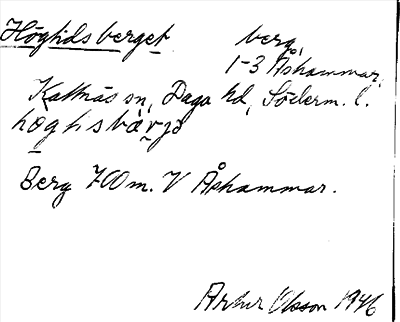 Högtidsberget berg,
1-3 Åshammar,
Kattnäs sn, Daga hd, Söderm. l.
högtisbärjə
Berg 700 m. V Åshammar.
Artur Olsson 1946